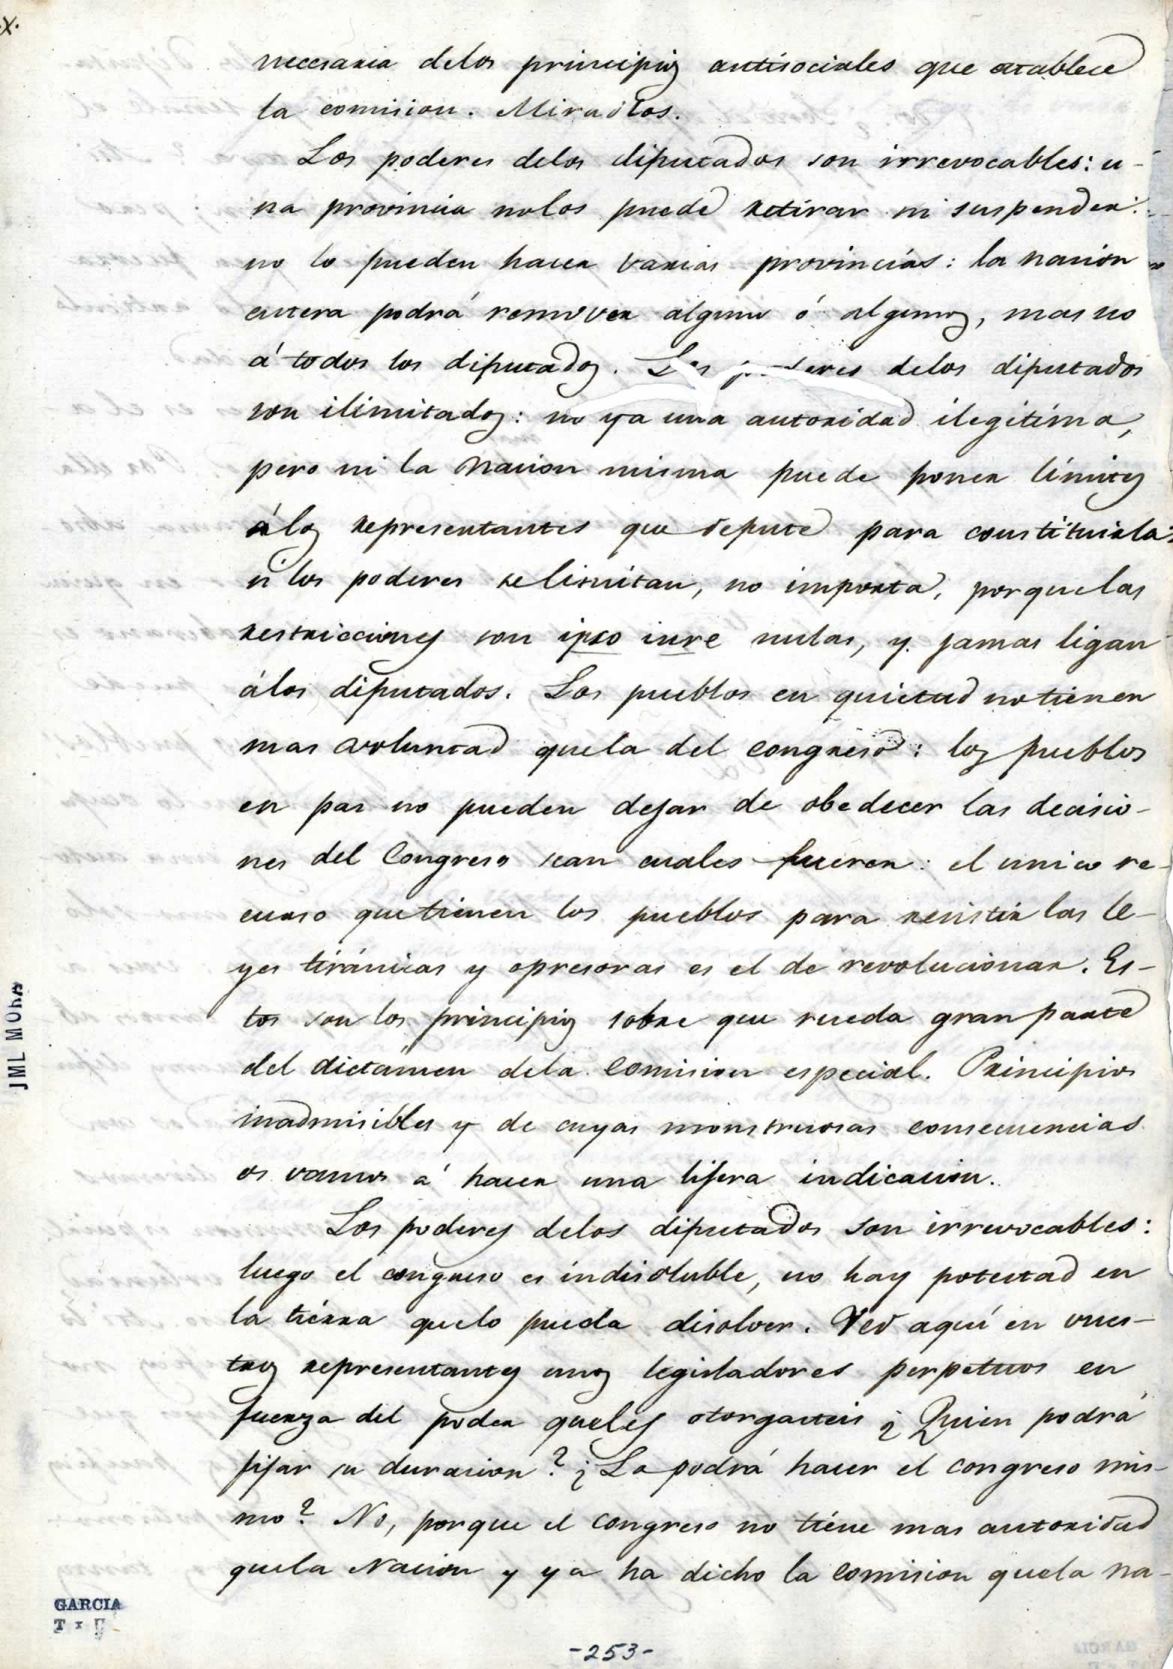 X.
necesaria delos principios antisociales que establece
la comision. Miradlos.
Los poderes delos diputados son irrevocables: u-
na provincia nolos puede retirar ni suspender:
no lo pueden hacer varias provincias: la nacion
entera podrá remover alguno ó algunos, mas no
á todos los diputados. Los poderes delos diputados
son ilimitados: no ya una autoridad ilegitima,
pero ni la Nacion misma puede poner limites
álos representantes que depute para constituirla:
si los poderes se limitan, no importa, porque las
restricciones son ipso iure nulas, y jamas ligan
álos diputados. Los pueblos en quietud no tienen
mas voluntad quela del congreso: los pueblos
en pas no pueden dejar de obedecer las decisio-
nes del Congreso sean cuales fueren: el unico re-
curso que tienen los pueblos para resistir las le-
yes tiránicas y opresoras es el de revolucionar. Es-
tos son los principios sobre que rueda gran parte
del dictámen dela comision especial. Principios
inadmisibles y de cuyas monstruosas consecuencias
os vamos á hacer una lijera indicacion.
Los poderes delos diputados son irrevocables:
luego el congreso es indisoluble, no hay potestad en
la tierra quelo pueda disolver. Ved aquí en vues-
tros representantes unos legisladores perpetuos en
fuerza del poder queles otorgasteis ¿Quien podrá
fijar su duracion? ¿Lo podrá hacer el congreso mis-
mo? No, porque el congreso no tiene mas autoridad
quela Nacion y ya ha dicho la comision quela na-
JML MORA
GARCIA
-253-